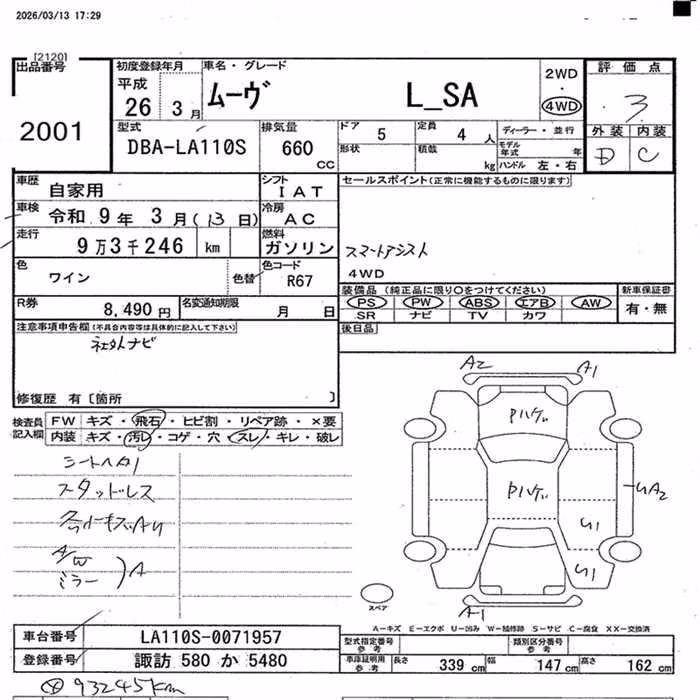 2026/03/13 17:29
[2120]
出品番号
2001
初度登録年月
平成
26 3月
車名・グレード
ムーヴ L_SA
2WD
・
4WD
評価点
3
外装 内装
D C
型式
DBA-LA110S
排気量
660
CC
ドア 5
定員 4 人
形状
積載
kg
ディーラー・並行
モデル年式 年
ハンドル 左・右
車歴
自家用
シフト
IAT
車検
令和 9年 3月(13日)
冷房
AC
走行
9万3千246 km
燃料
ガソリン
色
ワイン
色替
色コード
R67
R券
8,490円
名変通知期限
月 日
セールスポイント(正常に機能するものに限ります)
スマートアシスト
4WD
装備品 (純正品に限り○をつけてください)
PS PW ABS エアB AW
SR ナビ TV カワ
新車保証書
有・無
後日品
注意事項申告欄(不具合内容等は具体的に記入して下さい)
社外ナビ
修復歴 有〔箇所 〕
検査員
記入欄
FW キズ・飛石・ヒビ割・リペア跡・×要
内装 キズ・汚レ・コゲ・穴・スレ・キレ・破レ
シートヘタリ
スタッドレス
A/W
ミラー
)A
A2
A1
Pハゲ
Pハゲ
A2
A1
スペア
A-キズ E-エクボ U-凹み W-補修跡 S-サビ C-腐食 XX-交換済
車台番号
LA110S-0071957
登録番号
諏訪 580 か 5480
型式指定番号
参考
類別区分番号
参考
車庫証明用
参考
長さ 339 cm 幅 147 cm 高さ 162 cm
93245km